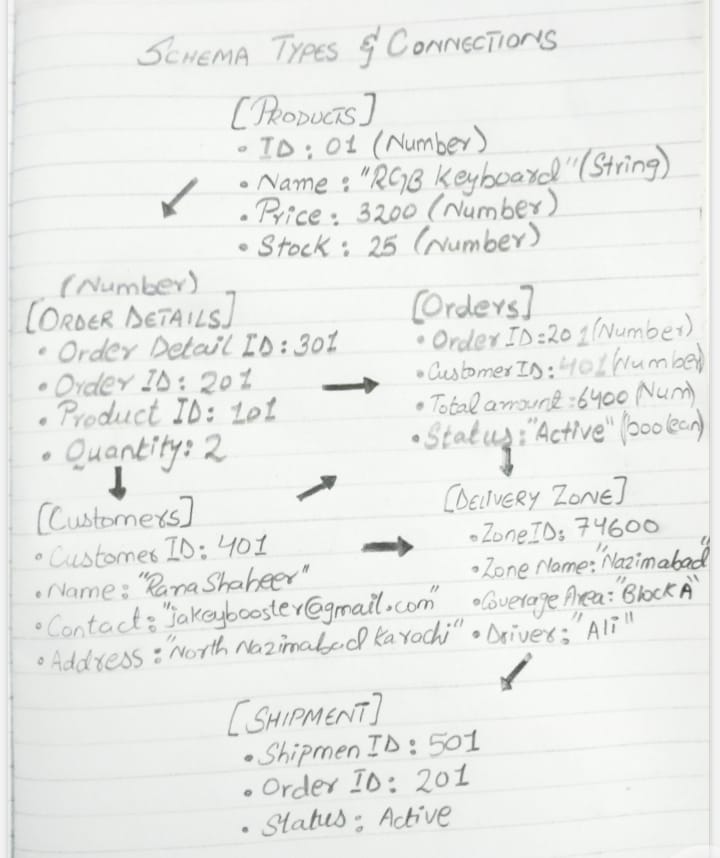 SCHEMA TYPES & CONNECTIONS
[PRODUCTS]
• ID : 01 (Number)
• Name : "RGB Keyboard" (String)
• Price : 3200 (Number)
• Stock : 25 (Number)
(Number)
[ORDER DETAILS]
• Order Detail ID : 301
• Order ID : 201
• Product ID : 101
• Quantity : 2
[Orders]
• Order ID = 201 (Number)
• Customer ID : 401 (Number)
• Total amount : 6400 (Num)
• Status : "Active" (boolean)
[Customers]
• Customer ID : 401
• Name : "Rana Shaheer"
• Contact : "jakeybooster@gmail.com"
• Address : "North Nazimabad Karachi"
[DELIVERY ZONE]
• Zone ID : 74600
• Zone Name : "Nazimabad"
• Coverage Area : "Block A"
• Driver : "Ali"
[SHIPMENT]
• Shipmen ID : 501
• Order ID : 201
• Status : Active